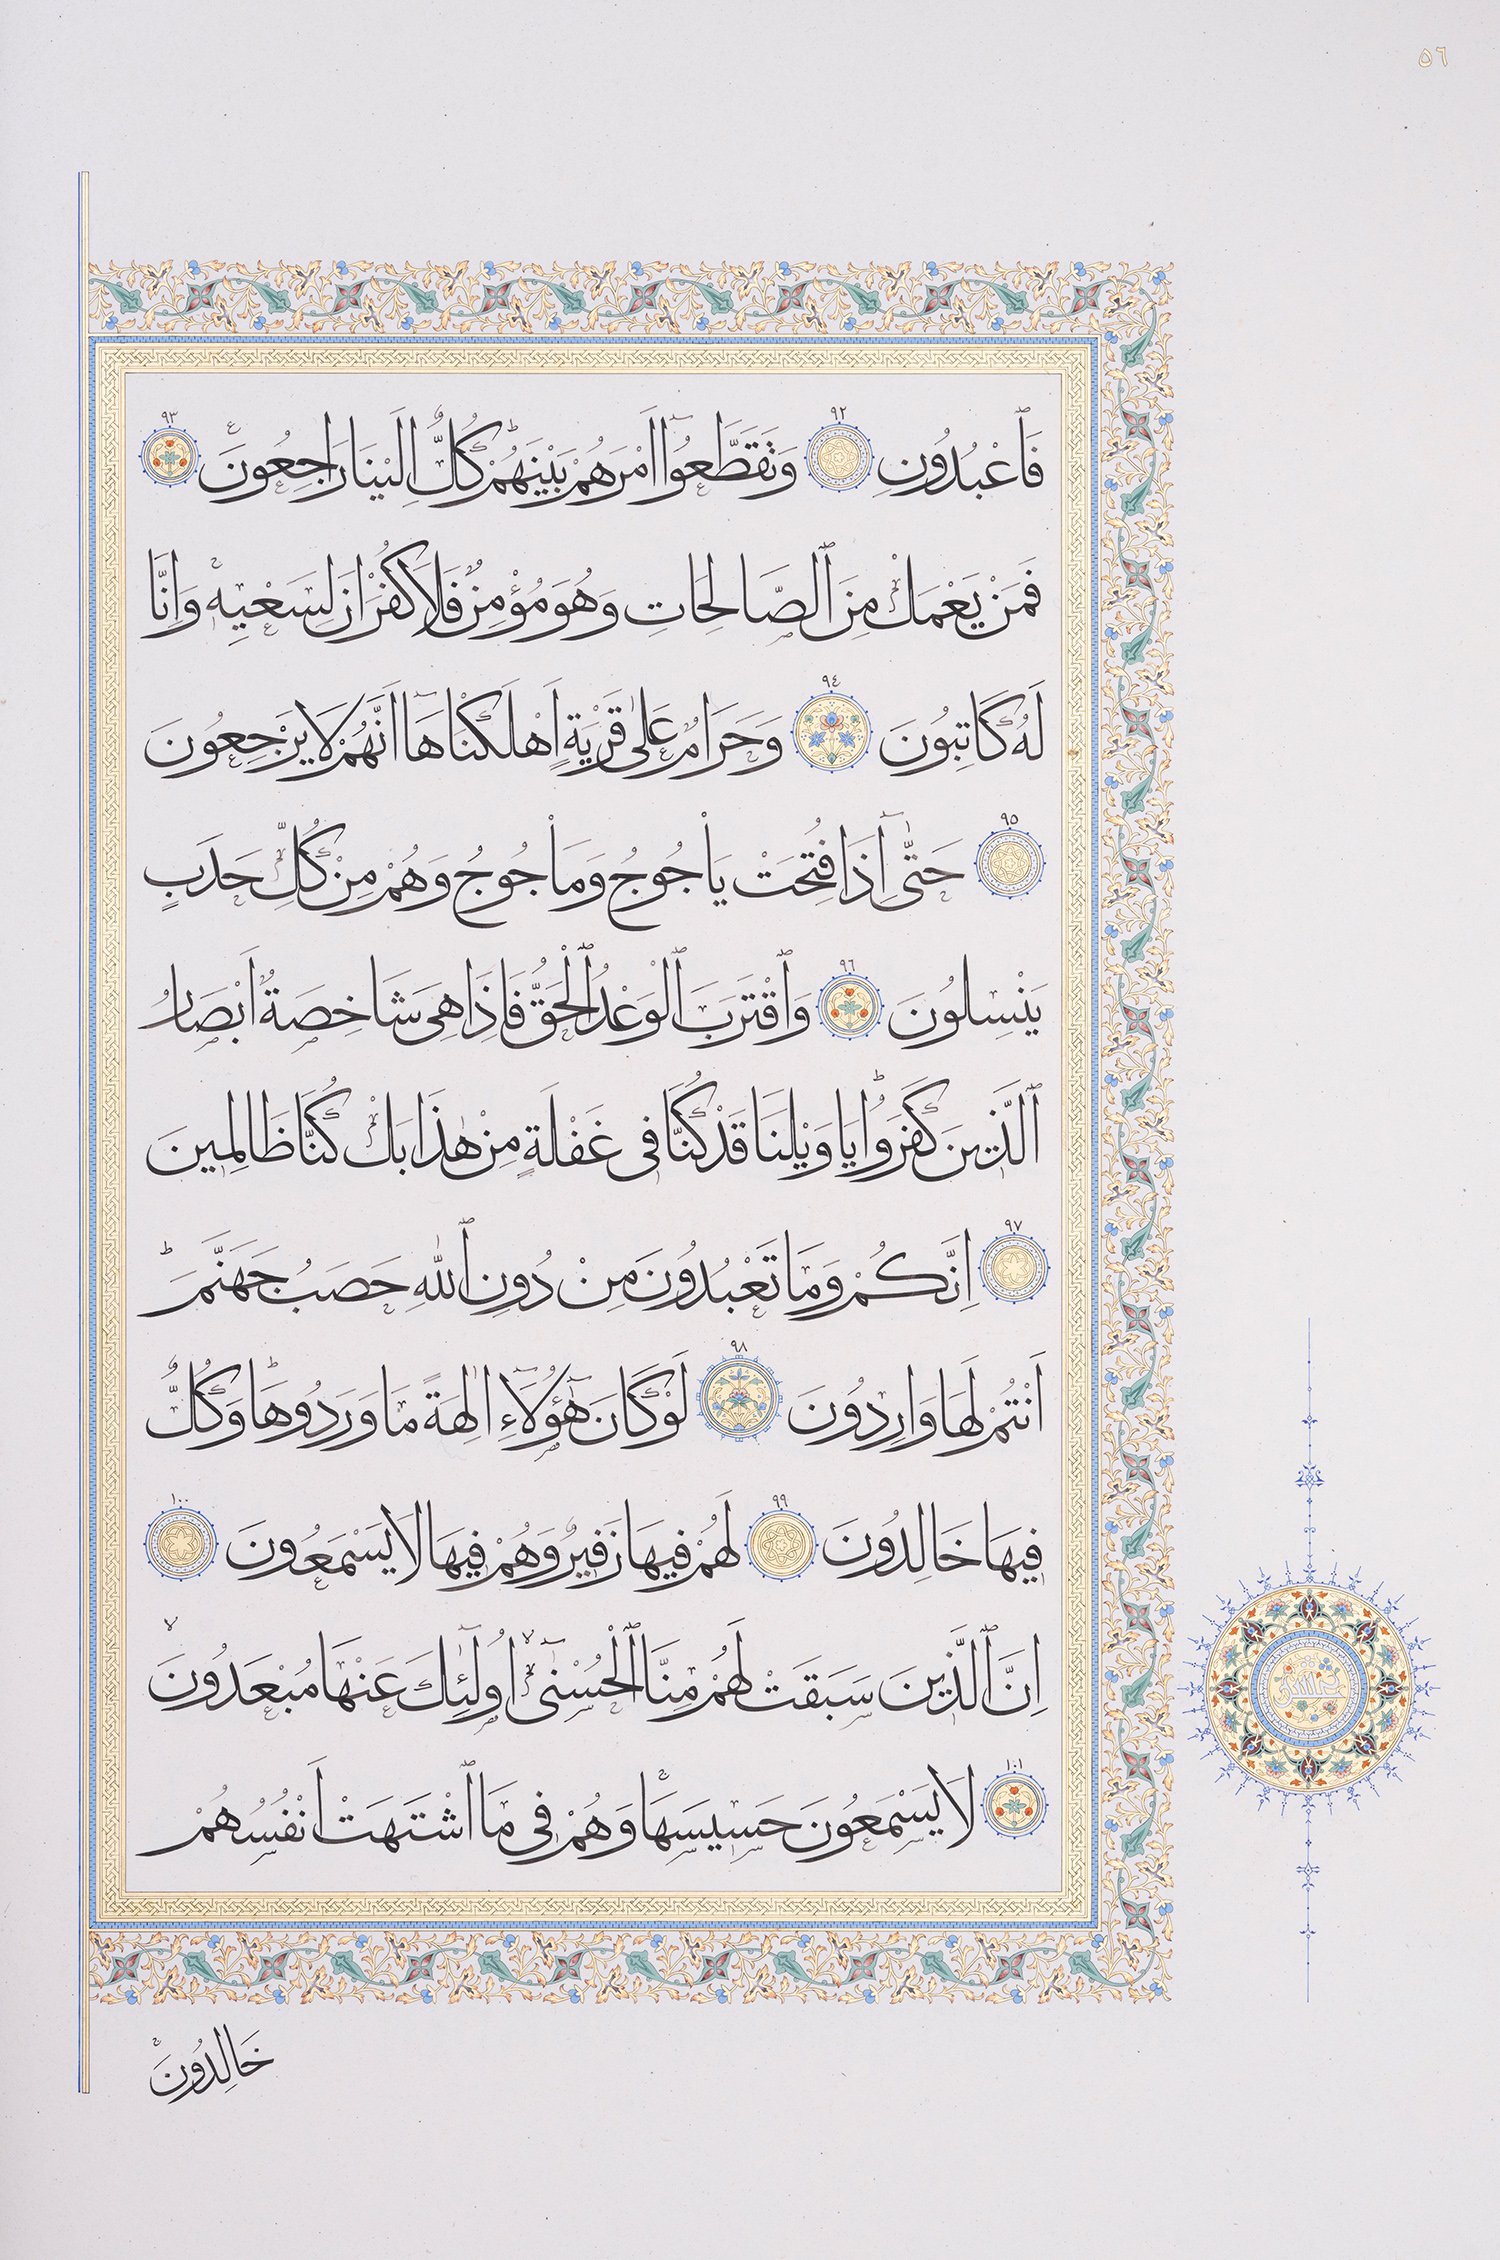 ٥٦
فَٱعْبُدُونِ ٩٢ وَتَقَطَّعُوٓا اَمْرَهُمْ بَيْنَهُمْ كُلٌّ اِلَيْنَا رَاجِعُونَ ٩٣
فَمَنْ يَعْمَلْ مِنَ ٱلصَّالِحَاتِ وَهُوَ مُؤْمِنٌ فَلَا كُفْرَانَ لِسَعْيِهِ وَاِنَّا
لَهُ كَاتِبُونَ ٩٤ وَحَرَامٌ عَلٰى قَرْيَةٍ اَهْلَكْنَاهَٓا اَنَّهُمْ لَا يَرْجِعُونَ
٩٥ حَتّٰىٓ اِذَا فُتِحَتْ يَأْجُوجُ وَمَأْجُوجُ وَهُمْ مِنْ كُلِّ حَدَبٍ
يَنْسِلُونَ ٩٦ وَٱقْتَرَبَ ٱلْوَعْدُ ٱلْحَقُّ فَاِذَا هِىَ شَاخِصَةٌ اَبْصَارُ
ٱلَّذِينَ كَفَرُوا يَا وَيْلَنَا قَدْ كُنَّا فِى غَفْلَةٍ مِنْ هٰذَا بَلْ كُنَّا ظَالِمِينَ
٩٧ اِنَّكُمْ وَمَا تَعْبُدُونَ مِنْ دُونِ ٱللّٰهِ حَصَبُ جَهَنَّمَ
اَنْتُمْ لَهَا وَارِدُونَ ٩٨ لَوْ كَانَ هٰٓؤُلَٓاءِ اٰلِهَةً مَا وَرَدُوهَا وَكُلٌّ
فِيهَا خَالِدُونَ ٩٩ لَهُمْ فِيهَا زَفِيرٌ وَهُمْ فِيهَا لَا يَسْمَعُونَ ١٠٠
اِنَّ ٱلَّذِينَ سَبَقَتْ لَهُمْ مِنَّا ٱلْحُسْنٰىٓ اُولٰٓئِكَ عَنْهَا مُبْعَدُونَ
١٠١ لَا يَسْمَعُونَ حَسِيسَهَا وَهُمْ فِى مَا ٱشْتَهَتْ اَنْفُسُهُمْ
خَالِدُونَ